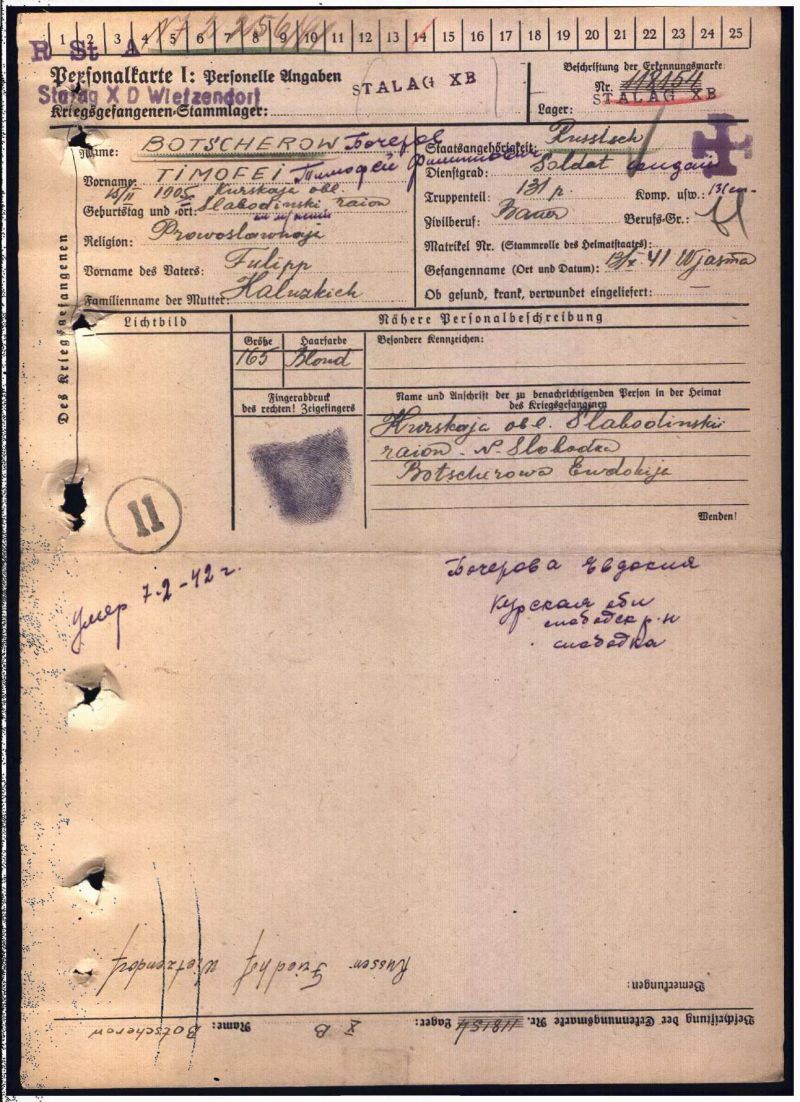 1 2 3 4 5 6 7 8 9 10 11 12 13 14 15 16 17 18 19 20 21 22 23 24 25
R St A
Personalkarte I: Personelle Angaben
Stalag X D Wietzendorf
Kriegsgefangenen-Stammlager:
STALAG XB
Beschriftung der Erkennungsmarke
Nr. 118154
Lager: STALAG XB
Des Kriegsgefangenen
Name: BOTSCHEROW Бочеров
Vorname: TIMOFEI Тимофей Филиппович
15/II 1905 Kurskaja obl.
Geburtstag und -ort: Slabodinski raion
Religion: Prawoslawnaja
Vorname des Vaters: Fulipp
Familienname der Mutter: Haluzkich
Staatsangehörigkeit: Russisch
Dienstgrad: Soldat
Truppenteil: 131 p. Komp. usw.:
Zivilberuf: Bauer Berufs-Gr.:
Matrikel Nr. (Stammrolle des Heimatstaates):
Gefangenname (Ort und Datum): 41 Wjasma
Ob gesund, krank, verwundet eingeliefert: —
Lichtbild
Nähere Personalbeschreibung
Größe Haarfarbe
165 Blond
Besondere Kennzeichen:
Fingerabdruck
des rechten! Zeigefingers
Name und Anschrift der zu benachrichtigenden Person in der Heimat
des Kriegsgefangenen
Kurskaja obl. Slabodinski
raion. N. Slobodka
Botscherowa Ewdokija
Wenden!
11
умер 7.2-42 г.
Бочерова Евдокия
Курская обл
слободск р-н
слободка
Russen Friedhof Wietzendorf
Bemerkungen:
Beschriftung der Erkennungsmarke Nr. 118154 Lager: X B Name: Botscherow